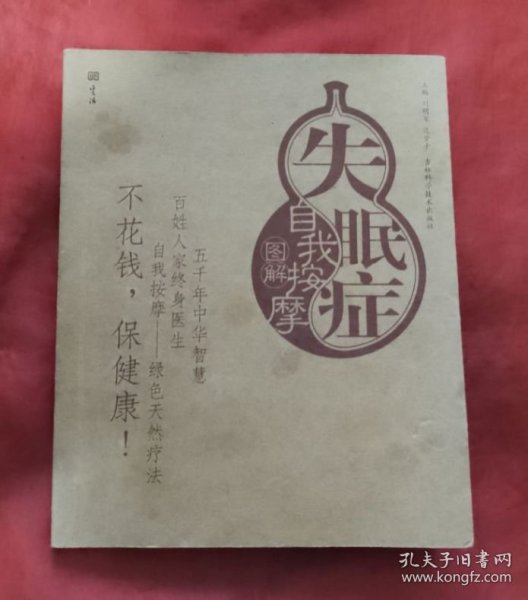 失眠症
自我按摩
图解
主编
吉林科学技术出版社
五千年中华智慧
百姓人家终身医生
自我按摩——绿色天然疗法
不花钱，保健康！
生活
孔夫子旧书网
www.kongfz.com